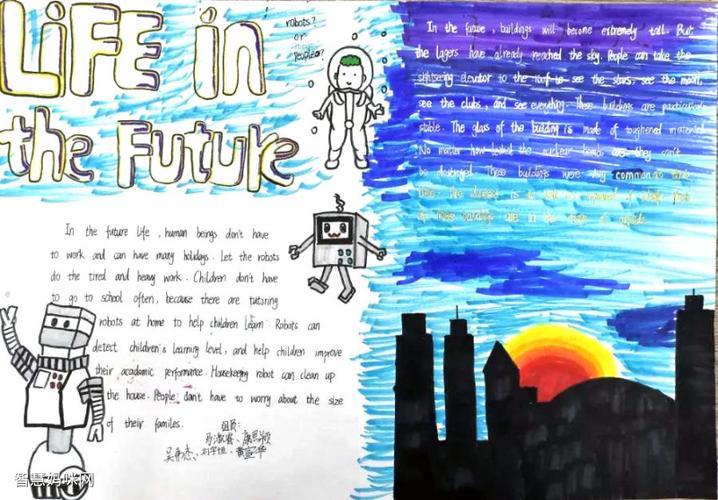 LiFE in
the Future
robots?
or
people?
In the future, buildings will become extremely tall. But
the layers have already reached the sky. People can take the
sightseeing elevator to the roof to see the stars, see the moon,
see the clubs, and see everything. These buildings are particularly
stable. The glass of the building is made of toughened material.
No matter how the nuclear bombs are, they can't
be destroyed. These buildings were very common at that
time.
these buildings are in the shape of
In the future life, human beings don't have
to work and can have many holidays. Let the robots
do the tired and heavy work. Children don't have
to go to school often, because there are tutoring
robots at home to help children learn. Robots can
detect children's learning level, and help children improve
their academic performance. Housekeeping robot can clean up
the house. People don't have to worry about the size
of their families.
组员:
智慧妈咪网